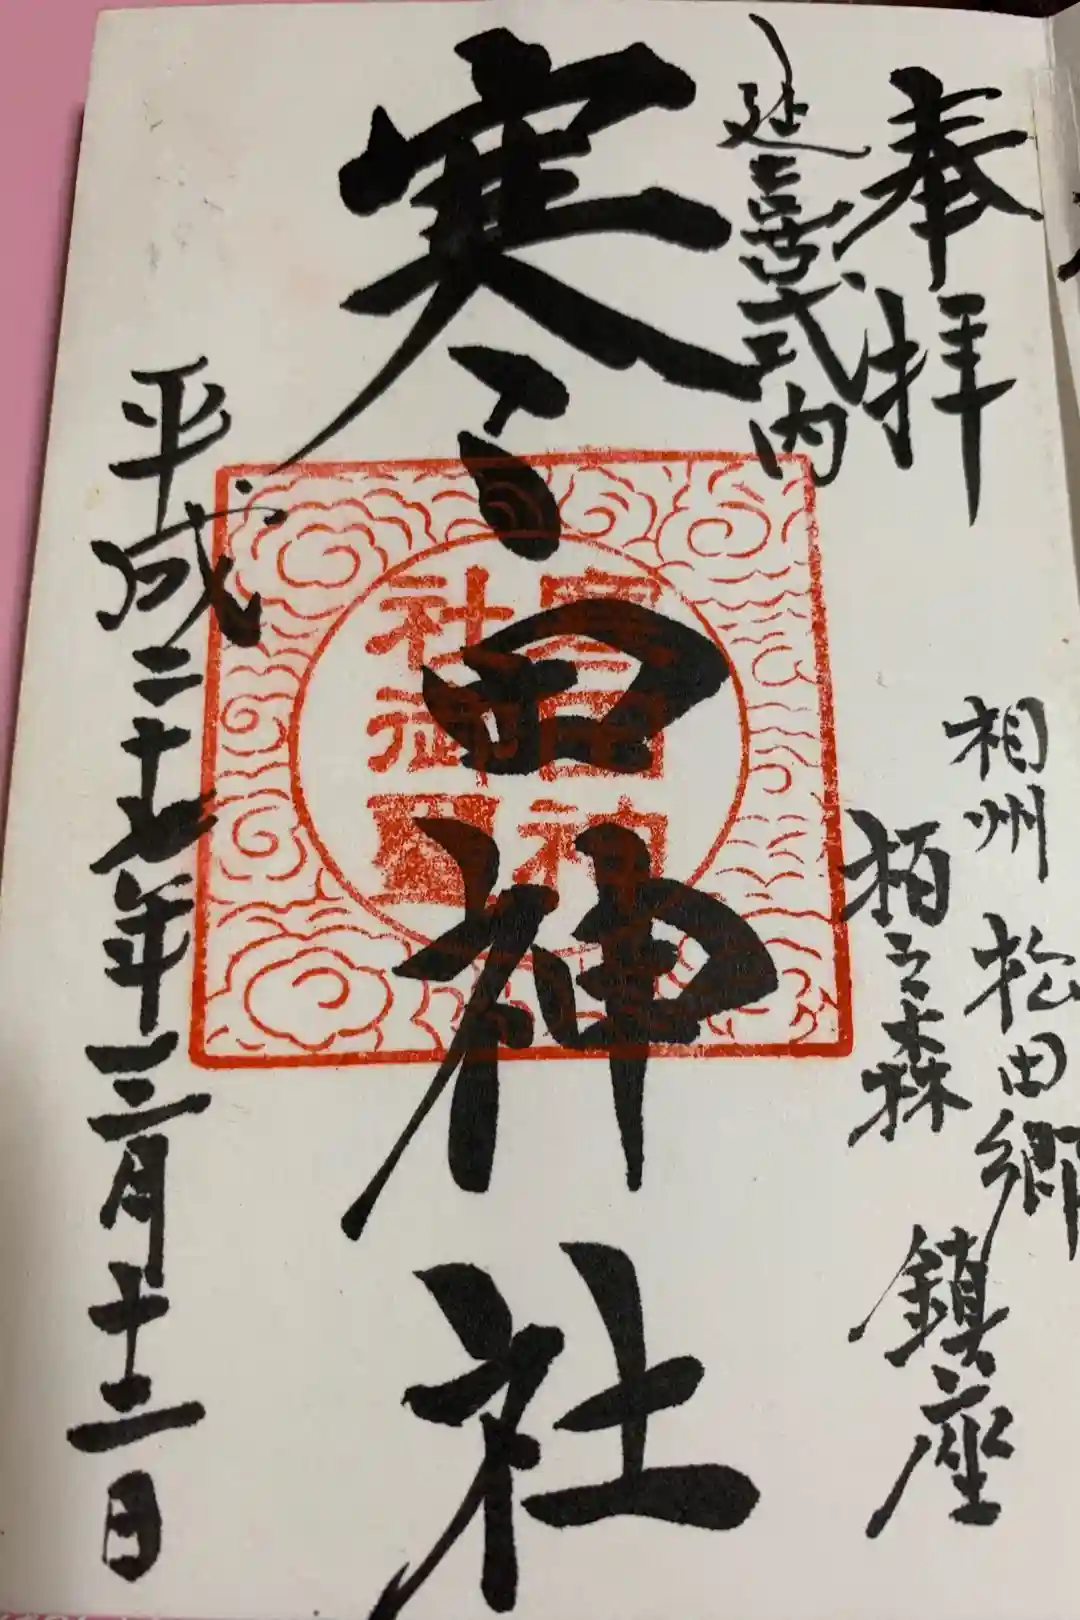 奉拝
延喜式内
相州 松田郷
栢之森
鎮座
寒田神社
寒田神
社御
平成二十七年三月十二日